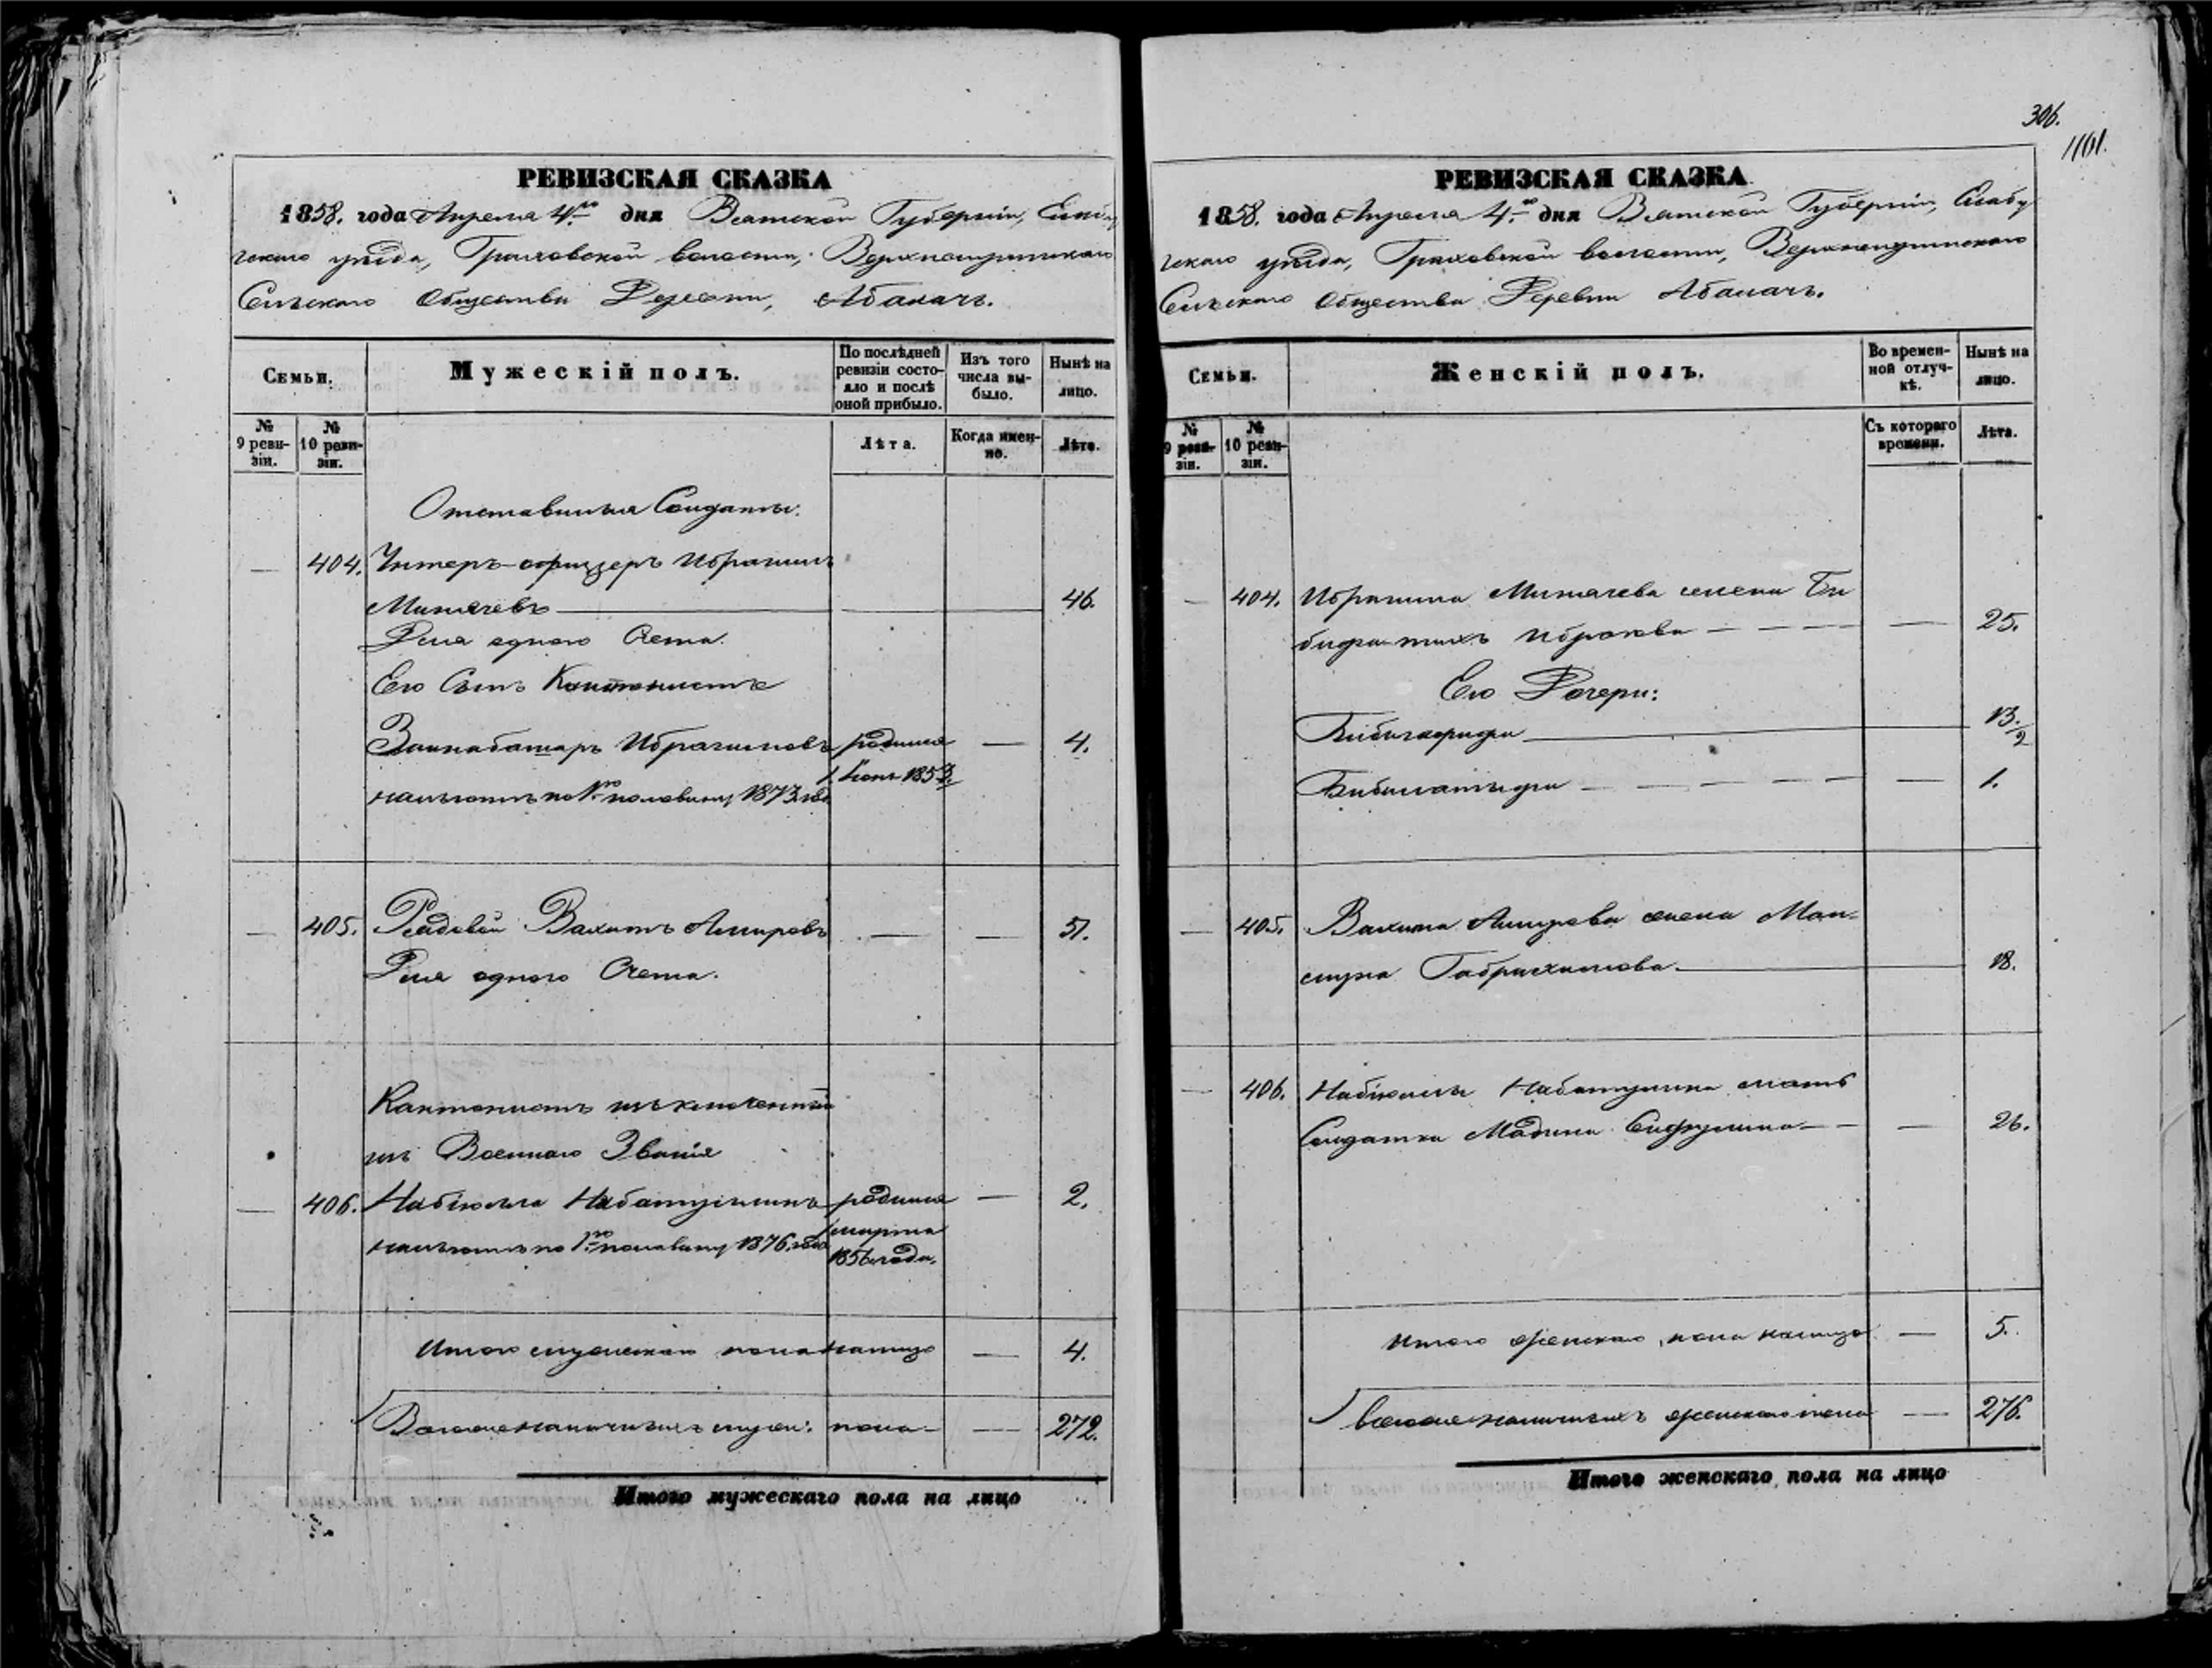 306.
1161.
РЕВИЗСКАЯ СКАЗКА
1858. года Апреля 4.го дня Вятской Губерніи, Елабу
гскаго уѣзда, Граховской волости, 
Сельскаго Общества Деревни, Абалачъ.
Семьи.
Мужескій полъ.
По послѣдней ревизіи состояло и послѣ оной прибыло.
Изъ того числа выбыло.
Нынѣ на лицо.
№ 9 ревизіи.
№ 10 ревизіи.
Лѣта.
Когда именно.
Лѣта.
Отставныя Солдаты.
— 404. Унтеръ-офицеръ Ибрагимъ
Минячевъ 46.
Для одного Счета.
Его Сынъ Кантонистъ
Ибрагимовъ родился — 4.
1. 1853.
на 1ю половину 1873 года
— 405. Рядовой Вахитъ Амировъ — — 51.
Для одного Счета.
Кантонистъ исключенный
изъ Военнаго Званія
— 406. Набіюлла Набатуллинъ родился — 2.
марта
на 1ю половину 1876 года 1856 года.
Итого мужескаго пола налицо — 4.
Всего наличныхъ муж: пола — 272.
Итого мужескаго пола на лицо
РЕВИЗСКАЯ СКАЗКА
1858. года Апреля 4.го дня Вятской Губерніи, Елабу
гскаго уѣзда, Граховской волости, 
Сельскаго Общества Деревни Абалачъ.
Семьи.
Женскій полъ.
Во временной отлучкѣ.
Нынѣ на лицо.
№ 9 ревизіи.
№ 10 ревизіи.
Съ котораго времени.
Лѣта.
— 404. Ибрагима Минячева жена Би
— 25.
Его Дочери:
13.
/2
— 1.
— 405. Вахита Амирова жена Ман-
сура 18.
— 406. Набіюллы Набатуллина мать
Солдатка Мадина Сифуллина — 26.
Итого женскаго пола налицо — 5.
Всего наличныхъ женскаго пола — 276.
Итого женскаго пола на лицо